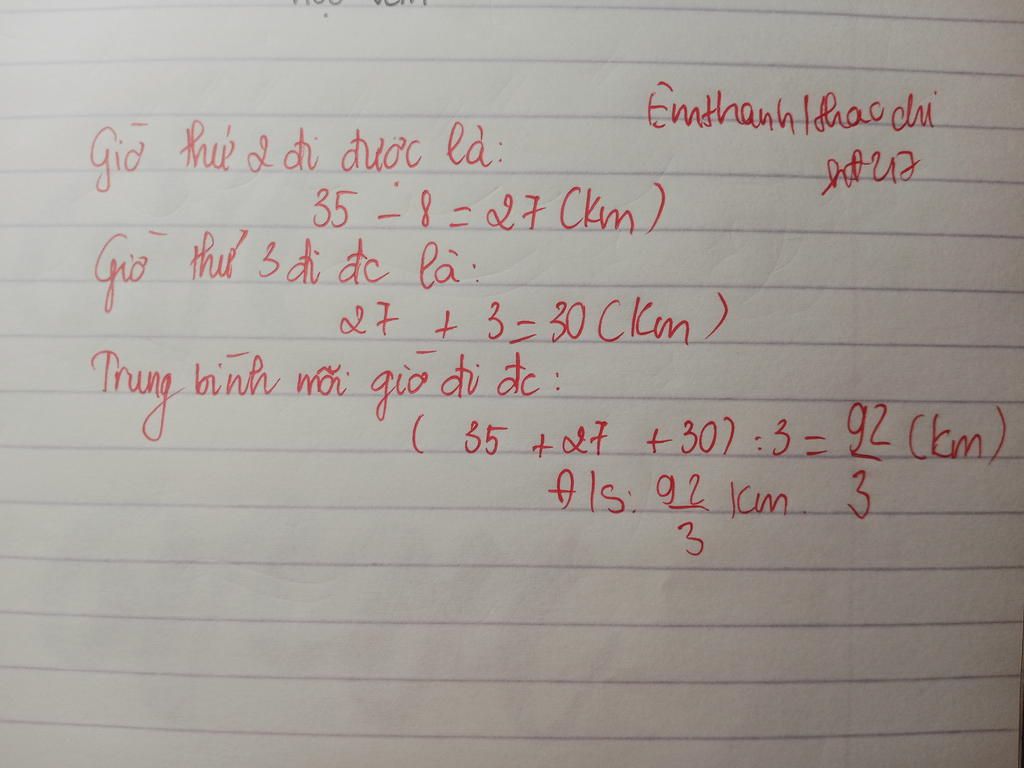 Emthanh/thao chi
Giờ thứ 2 đi được là:
35 - 8 = 27 (km)
Giờ thứ 3 đi đc là:
27 + 3 = 30 (km)
Trung bình mỗi giờ đi đc:
( 35 + 27 + 30) : 3 = 92/3 (km)
Đ/S: 92/3 km.